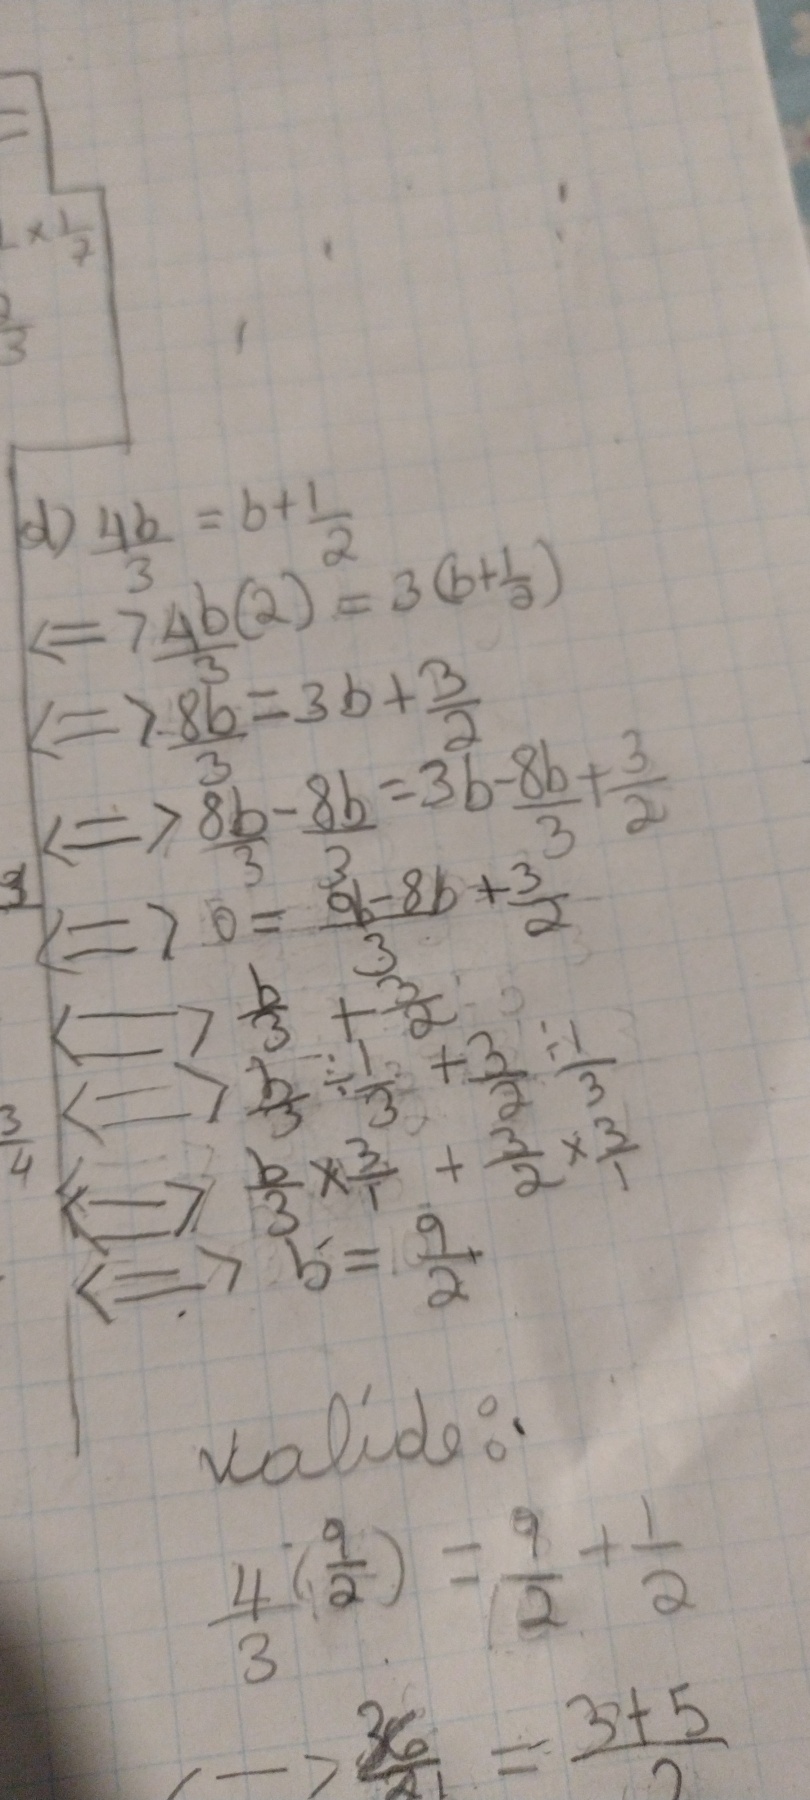 =
× 1/7
2/3
d) 4b/3 = b + 1/2
<=> 4b(2)/3 = 3(b + 1/2)
<=> 8b/3 = 3b + 3/2
<=> 8b/3 - 8b/3 = 3b - 8b/3 + 3/2
3
<=> 0 = 9b - 8b/3 + 3/2
<=> b/3 + 3/2
3/4
<=> b/3 ÷ 1/3 + 3/2 ÷ 1/3
<=> b/3 × 3/1 + 3/2 × 3/1
<=> b = 9/2
valide:
4/3 (9/2) = 9/2 + 1/2
<-> 36/ = 3+5/2